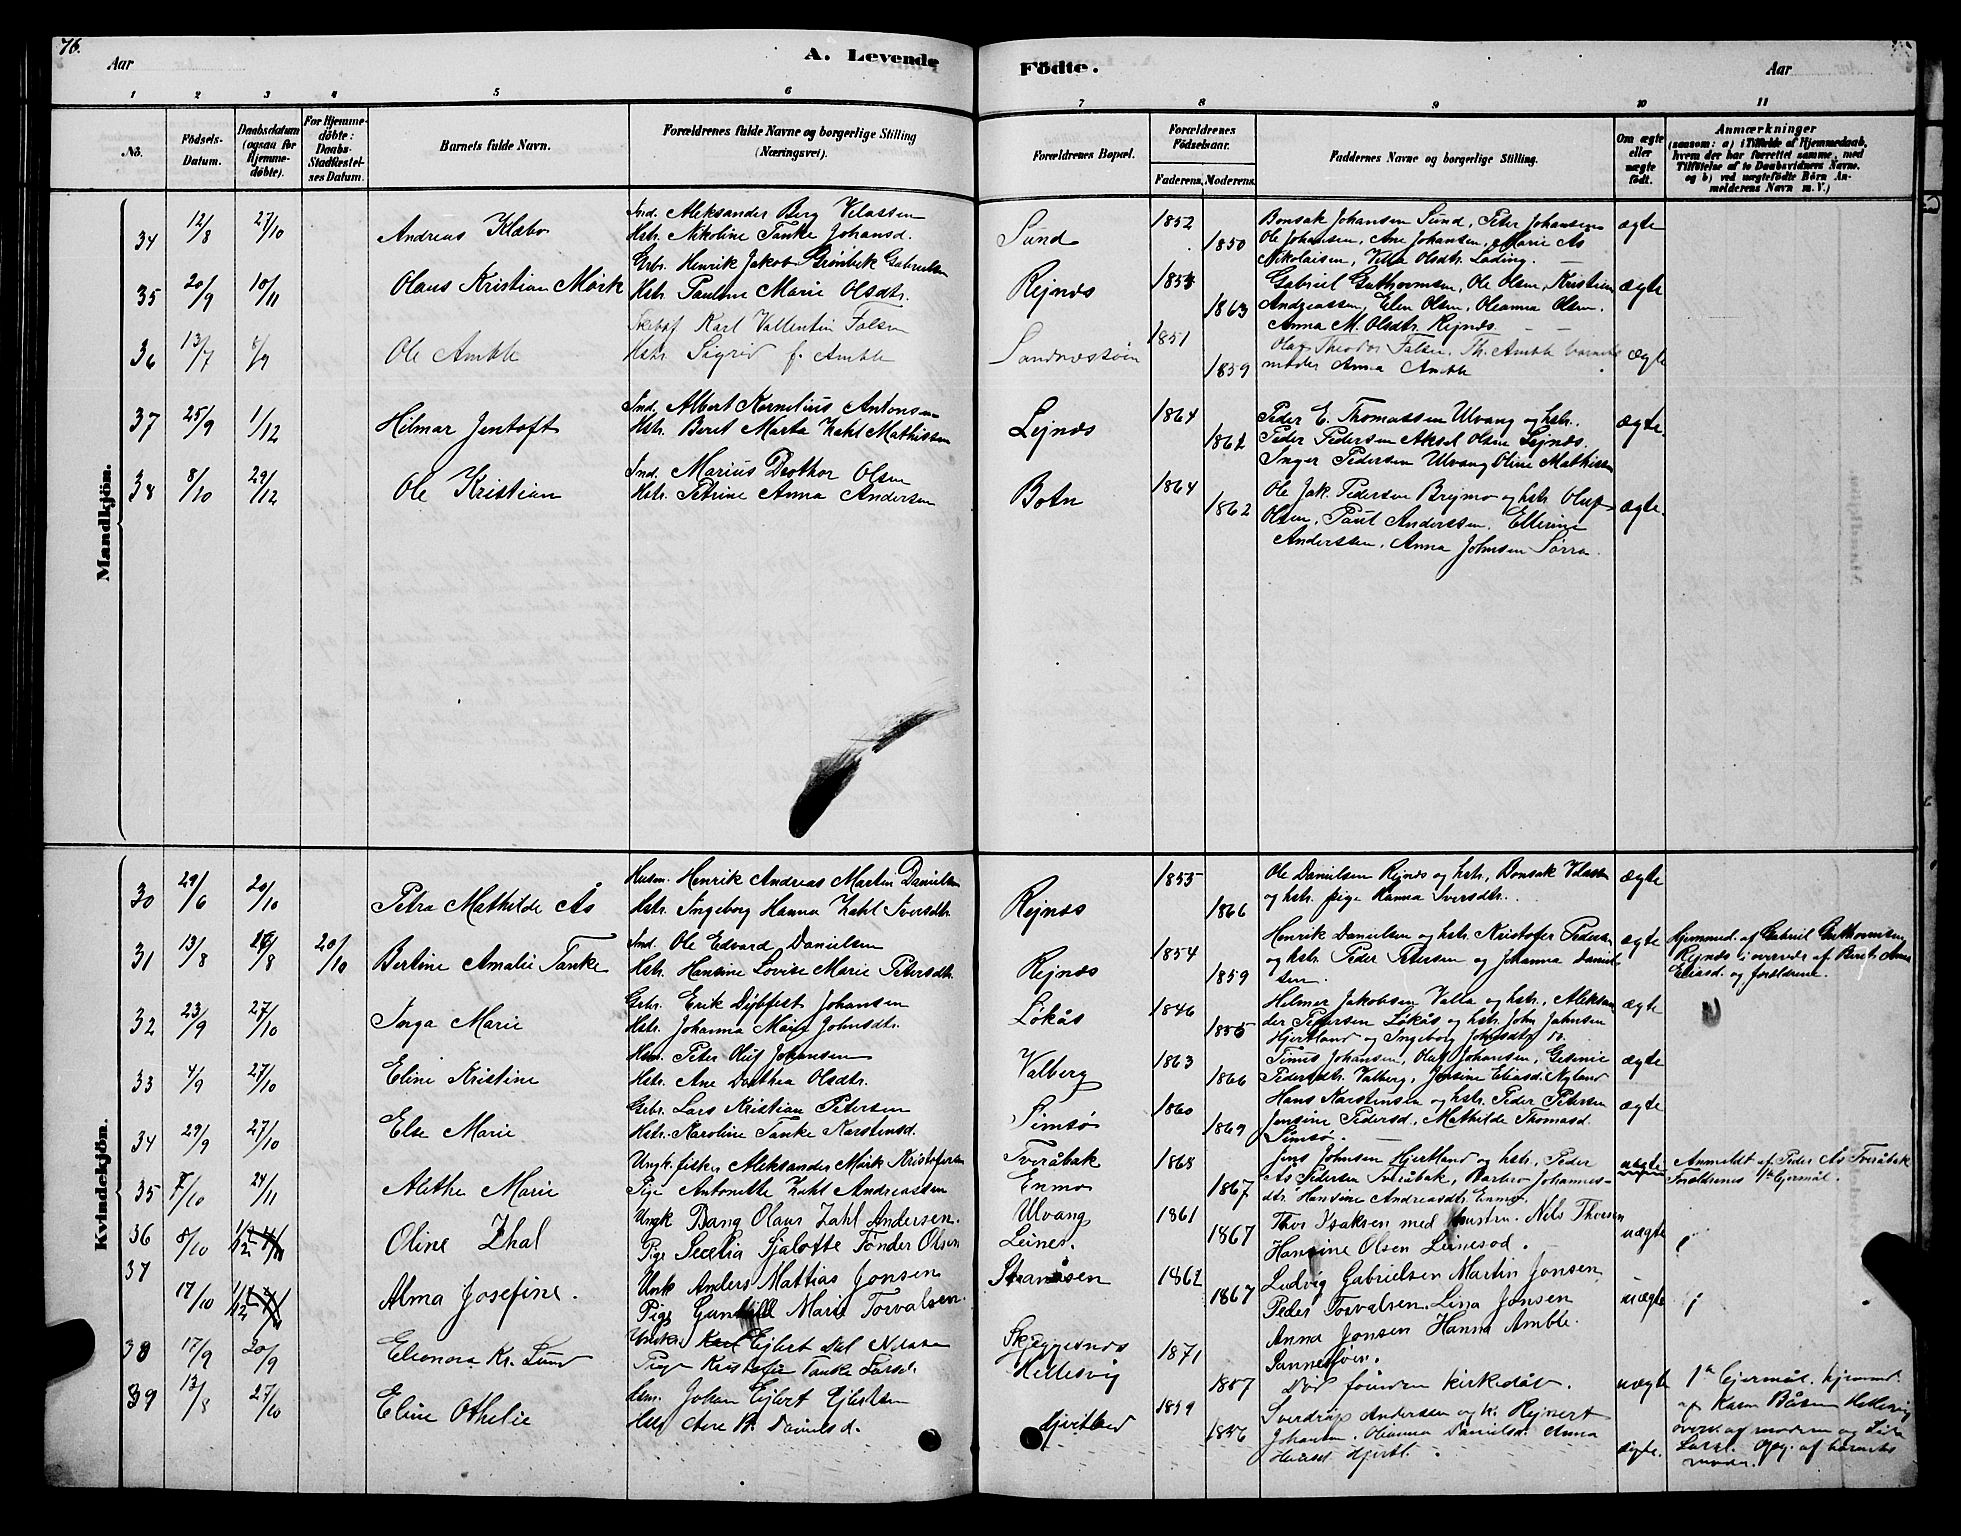 76.
A. Levende Födte.
Aar
Aar
1 2 3 4 5 6 7 8 9 10 11
No.
Födsels-Datum.
Daabsdatum (ogsaa for Hjemme-döbte).
For Hjemme-döbte: Daabs-Stadfæstel-ses Datum.
Barnets fulde Navn.
Forældrenes fulde Navne og borgerlige Stilling (Næringsvei).
Forældrenes Bopæl.
Forældrenes Födselsaar.
Faderens. Moderens.
Faddernes Navne og borgerlige Stilling.
Om ægte eller uægte födt.
Anmærkninger
(saasom: a) i Tilfælde af Hjemmedaab, hvem der har forrettet samme, med Tilföielse af to Daabsvidners Navne. og b) ved uægtefödte Börn An-melderens Navn m. V.)
Mandkjön.
34 12/8 27/10 Andreas Klæbo
Ind. Aleksander Berg Velassen
Hstr. Nikoline Tanke Johansd.
Sund 1852 1850
Bonsak Johansen Sund, Peter Johansen
Ole Johansen, Ane Johansen, Marie Ås
Nikolaisen, Villa Olsdtr. Lading.
ægte
35 20/9 10/11 Olaus Kristian Mörk
Grbr. Henrik Jakob Grönbek Gabrielsen
Hstr. Pauline Marie Olsdtr.
Rejnæs 1854 1863
Gabriel Guthormsen, Ole Olsen, Kristian
Andreassen, Elen Olsen, Oleanna Olsen.
Anna M. Olsdtr. Rejnæs.
ægte
36 13/7 8/9 Ole Amble
Karl Vallentin Falsen
Hstr. Sigrid f. Amble
Sandnessöen 1851 1859
Olaf Theodor Falsen. Th. Amble barnets
moder Anna Amble
ægte
37 25/9 1/12 Hilmar Jentoft
Ind. Albert Kornelius Antonsen
Hstr. Beret Marta Zahl Mathissen
Lejnæs 1864 1862
Peder E. Thomassen Ulvang og hstr.
Peder Pedersen Aksel Olsen Lejnæs.
Inger Pedersen Ulvang Oline Mathissen
ægte.
38 8/10 29/12 Ole Kristian
Ind. Marius Prothor Olsen
Hstr. Petrine Anna Andersen
Botn 1864 1862
Ole Jak. Pedersen Brejmo og hstr. Oluf
Olsen, Paul Anderssen, Ellerine
Anderssen, Anna Johnsen Sörra.
ægte.
Kvindekjön.
30 29/6 20/10 Petra Mathilde Ås
Husm. Henrik Andreas Martin Danielsen
Hstr. Ingeborg Hanna Zahl Iversdtr.
Rejnæs 1855 1866
Ole Danielsen Rejnæs og hstr., Bonsak Velassen
og hstr. pige Hanna Iversdtr.
ægte
31 13/8 28/8 20/10 Bertine Amalie Tanke
Ind. Ole Edvard Danielsen
Hstr. Hansine Lovise Marie Petersdtr.
Rejnæs 1854 1859
Henrik Danielsen og hstr. Kristofer Pedersen
og hstr. Peder Petersen og Johanna Daniel-
sen.
ægte
Hjemmed. af Gabriel Guthormsen
Rejnæs i overvær af Beret Anna
Eliasd. og forældrene.
32 23/9 27/10 Inga Marie
Grbr. Erik Dybfest Johansen
Hstr. Johanna Marie Johnsdtr.
Lökås 1846 1855
Helmer Jakobsen Valla og hstr., Aleksan-
der Petersen Lökås og hstr. John Johnsen
Hjertland og Ingeborg Johnsdtr
ægte
33 4/9 27/10 Eline Kristine
Hsm. Peter Oluf Johansen
Hstr. Ane Dorthea Olsdtr.
Valberg 1863 1866
Tinus Johansen, Oluf Johansen, Gesine
Pedersdtr. Valberg, Jensine Eliasd. Nyland
ægte
34 29/9 27/10 Else Marie
Grbr. Lars Kristian Petersen
Hstr. Karoline Tanke Karstensd.
Simsö 1860 1869
Hans Karstensen og hstr. Peder Petersen
Jensine Pedersd. Mathilde Thomasd.
Simsö.
ægte
35 7/10 24/11 Alethe Marie
Ungk. fisker Aleksander Mörk Kristofersen
Pige Antonette Zahl Andreassen
Tveråbak
Enmo
1868 1867
Jens Johnsen Hjertland og hstr., Peder
Ås Pedersen Tveråbak, Barbro Johannes-
dtr. Hansine Andreasdtr. Enmo.
uægte
Anmeldt af Peder As Tveråbak
Forældrenes 1ste lejermål.
36 8/10 1/12 Oline Zhal
Ungk Bang Olaus Zahl Andersen.
Pige Secelia Sjalotte Tönder Olsen
Ulvang
Leines.
1861 1867
Thor Isaksen med hustru. Nils Thorsen
Hansine Olsen Leinesod.
uægte
37 17/10 1/12 Alma Josefine.
Unk Anders Mattias Jonsen
Pige Gunhild Marie Torvalsen
Stranåsen 1862 1867
Ludvig Gabrielsen Martin Jonsen
Peder Torvalsen. Lina Jonsen
Anna Jonsen Hanna Amble.
Sannesjöen.
uægte
38 17/9 20/9 Eleonora Kr. Lund
Ejlert Dal
Pige Kristofia Tanke Larsd.
Hellesvig
1871 1857
Död förinden kirkedåb.
uægte
1ste lejermål. hjemmed.
af Karen Båsen Hellesvig
overv. af moderen og
Larsd. Opg. af barnets
moder.
39 13/8 27/10 Eline Othelie
Hsm. Johan Ejlert Ejlertsen
Hstr. Ane B. Danielsd.
Hjertland 1859 1856
Sverdrup Andersen og h. Rejnert
Johansen. Oleanna Danielsd. Anna
Hjertl.
ægte.